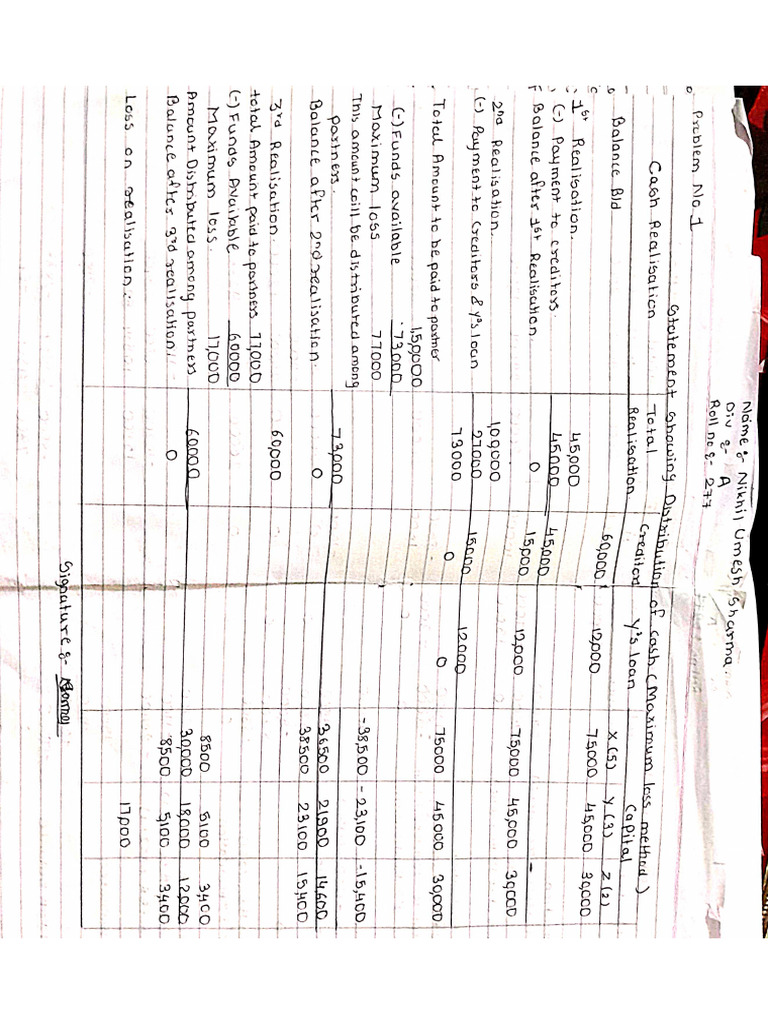 Name :- Nikhil Umesh Sharma.
Div :- A
Roll no :- 277
Problem No. 1
Statement Showing Distribution of cash (Maximum loss method)
Cash Realisation Total Realisation Creditors Y's loan Capital
X (5) Y (3) Z (2)
Balance B/d 60,000 12,000 75,000 45,000 30,000
1st Realisation. 45,000
(-) Payment to creditors. 45,000 45,000
Balance after 1st Realisation. 0 15,000 12,000 75,000 45,000 30,000
2nd Realisation. 1,00,000
(-) Payment to Creditors & Y's loan 27,000 15,000 12,000
73000 0 0 75000 45000 30,000
Total Amount to be paid to partner 1,50,000
(-) Funds available 73,000
Maximum loss 77000 -38,500 -23,100 -15,400
This amount will be distributed among
partners. 73,000 36500 21900 14,600
Balance after 2nd realisation. 0 38500 23100 15,400
3rd Realisation. 60,000
total Amount paid to partners 77,000
(-) Funds Available 60000
Maximum loss. 17,000 8500 5100 3,400
Amount Distributed among partners 60000 30,000 18,000 12,000
Balance after 3rd realisation. 0 8500 5100 3,400
Loss on realisation. 17,000
Signature :-